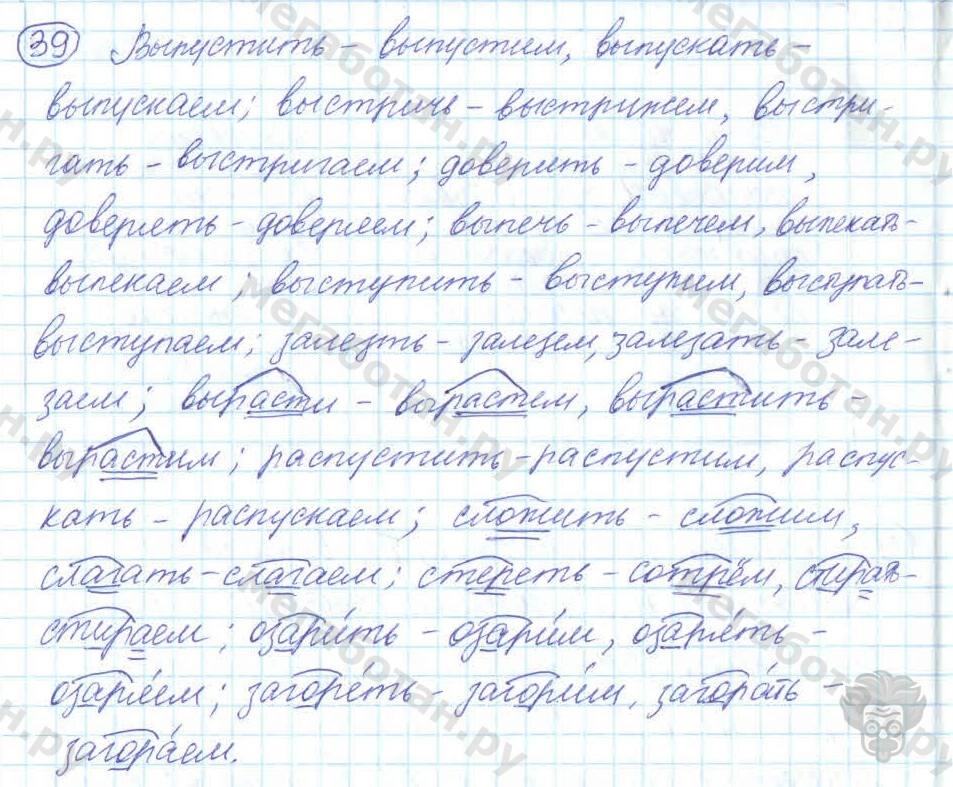 39 Выпустить – выпустим, выпускать –
выпускаем; выстричь – выстрижем, выстри-
гать – выстригаем; доверить – доверим,
доверять – доверяем; выпечь – выпечем, выпекать –
выпекаем; выступить – выступим, выступать –
выступаем; залезть – залезем, залезать – зале-
заем; вырасти – вырастем, вырастить –
вырастим; распустить – распустим, распус-
кать – распускаем; сложить – сложим,
слагать – слагаем; стереть – сотрём, стирать –
стираем; озари́ть – озари́м, озаря́ть –
озаря́ем; загоре́ть – загори́м, загора́ть –
загора́ем.
мегаботан.ру